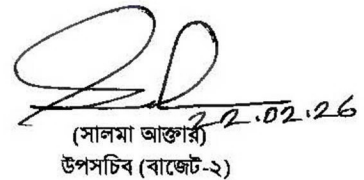 22.02.26
(সালমা আক্তার)
উপসচিব (বাজেট-২)